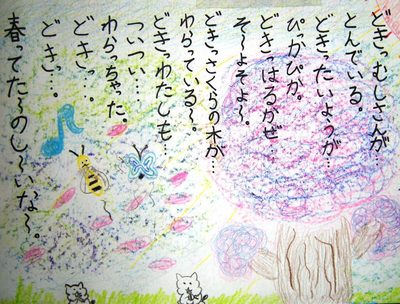 どきっむしさんが…
とんでいる。
どきったいようが…
ぴっかぴか。
どきっはるかぜ…
そ〜よそよ〜。
どきっさくらの木が…
わらっている〜。
どきっわたしも…
ついつい…
わらっちゃった。
どきっ…。
どきっ…。
春ってた〜のし〜いな〜。